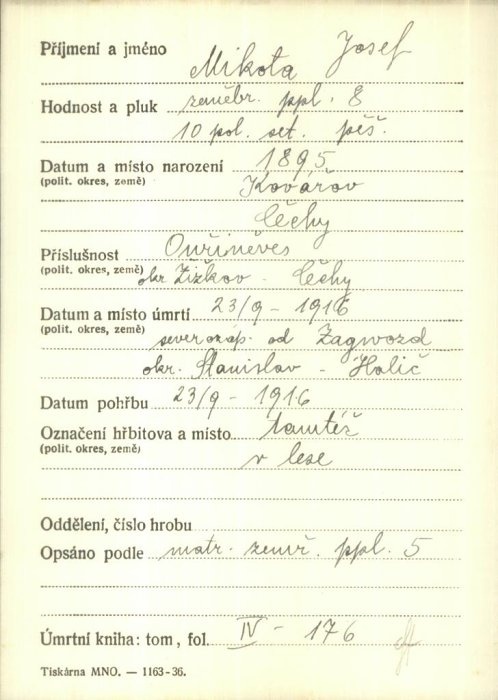 Příjmení a jméno Mikota Josef
Hodnost a pluk zeměbr. ppl. 8
10 pol. set. pěš.
Datum a místo narození 1895
(polit. okres, země) Kovářov
Čechy
Příslušnost Ouřiněves
(polit. okres, země) okr Žižkov - Čechy
Datum a místo úmrtí 23/9 - 1916
(polit. okres, země) severozáp. od Zagwozd
okr. Stanislav - Halič
Datum pohřbu 23/9 - 1916
Označení hřbitova a místo tamtéž
(polit. okres, země) v lese
Oddělení, číslo hrobu
Opsáno podle matr. zemř. ppl. 5
Úmrtní kniha: tom, fol. IV - 176
Tiskárna MNO. — 1163-36.